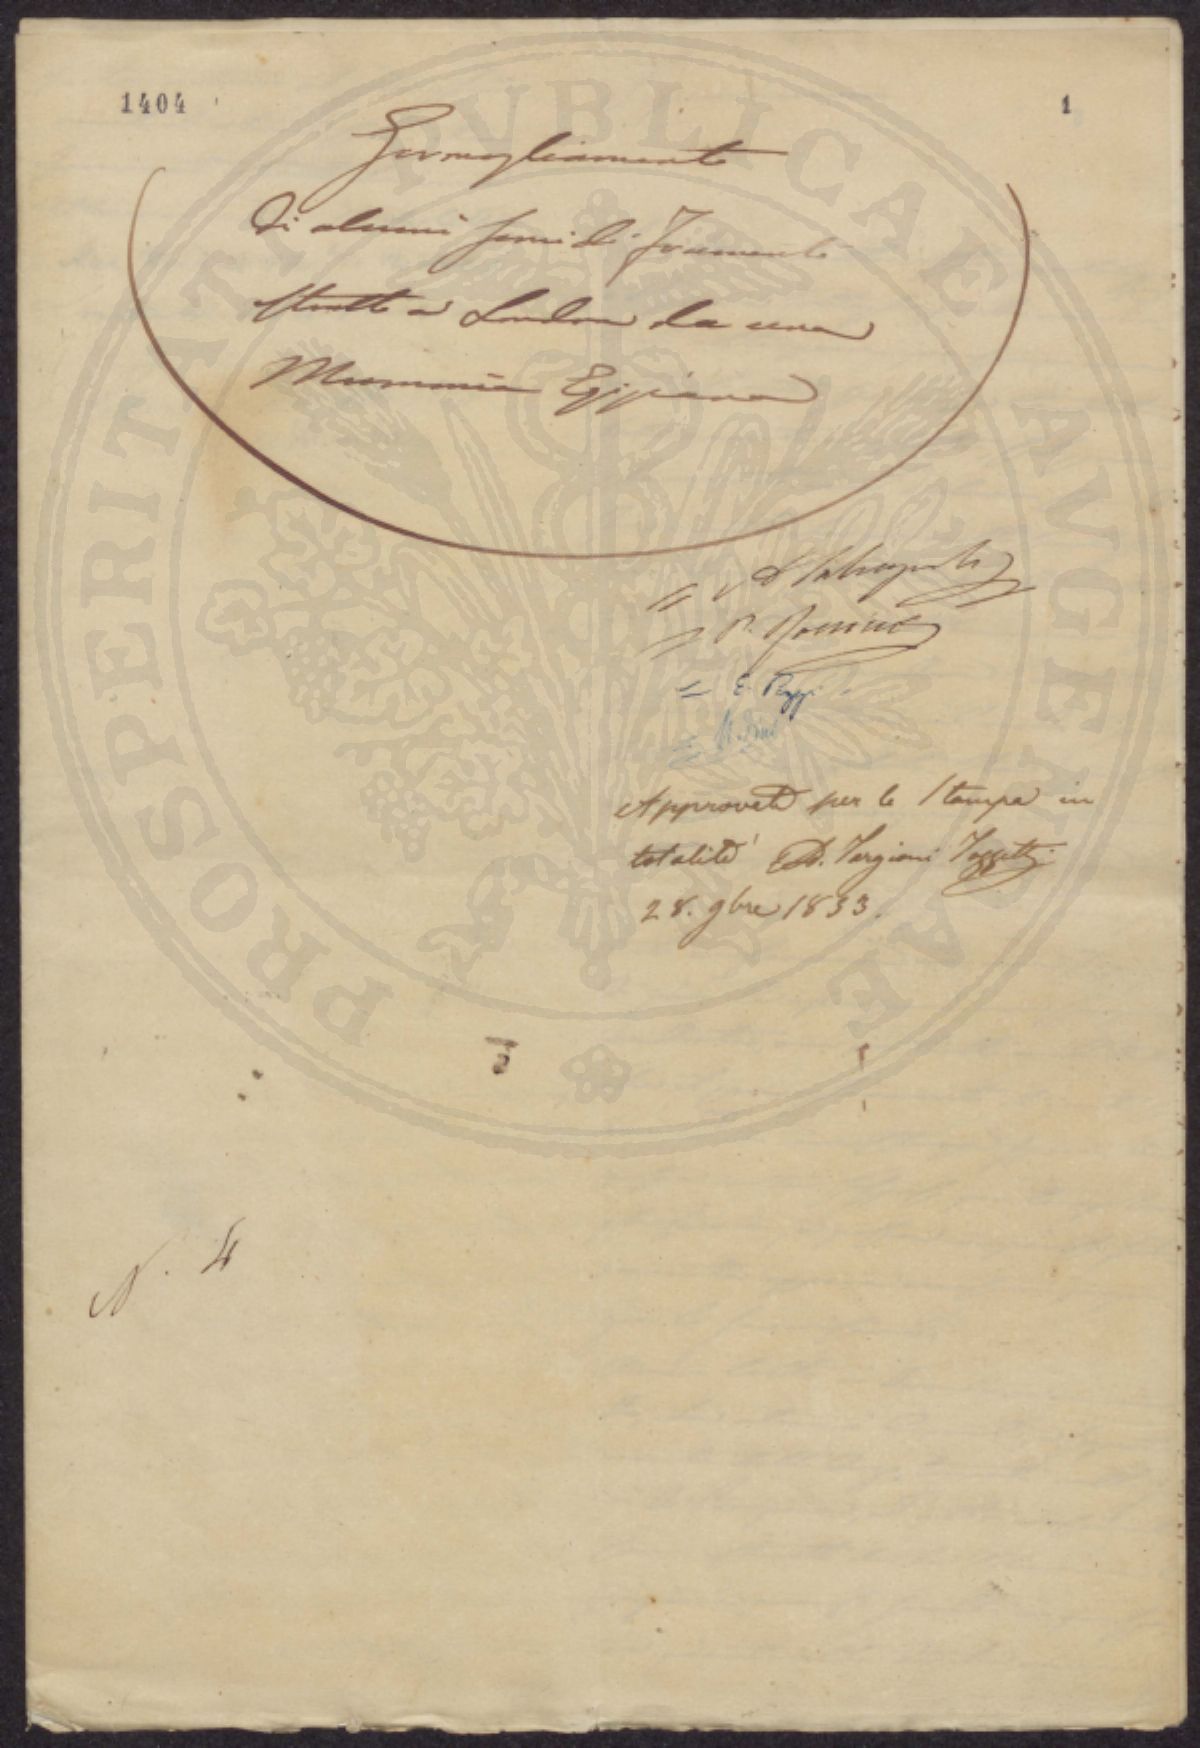 1404
1
Germogliamento
di alcuni semi di Frumento
stratto a Londra da una
Mummia Egiziana
= P.
= E. Poggi
Approvato per la Stampa in
totalità A. Targioni Tozzetti
28. 9bre 1833.
N. 4
PROSPERITATI PVBLICAE AVGENDAE